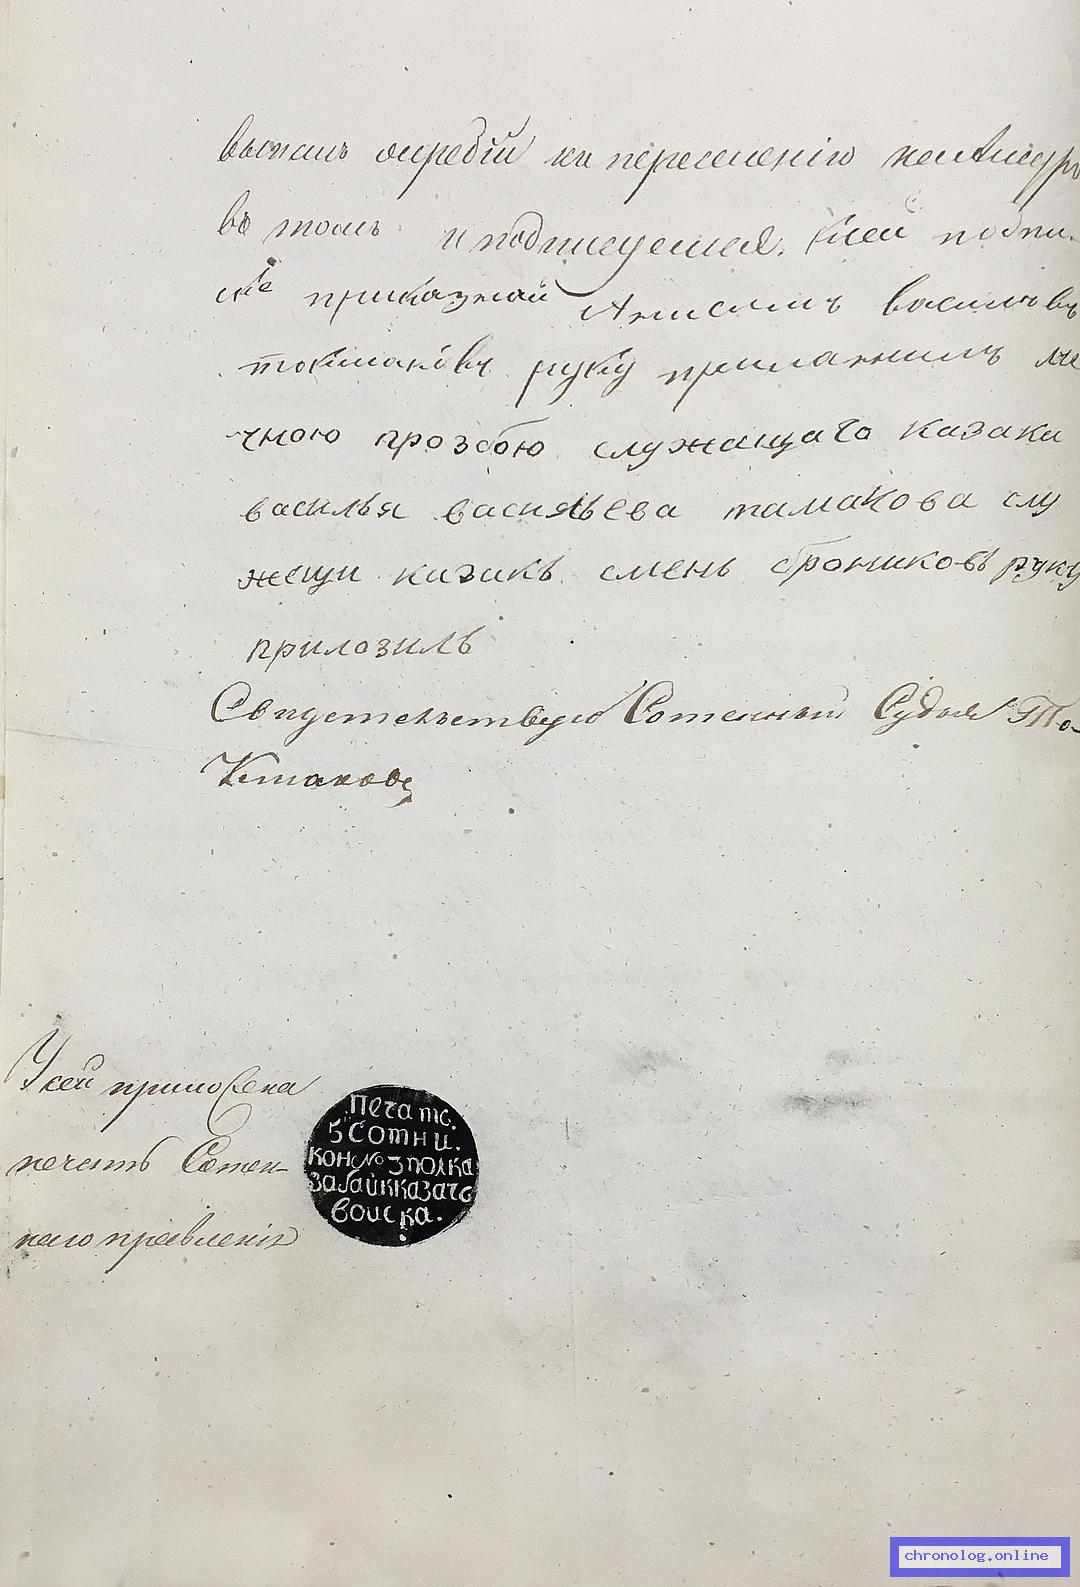 выпалъ жеребій къ переселенію на Амуръ
въ томъ и подписуемся. Ксей подпи-
ске приказной Анисимъ василевъ
токмаковъ руку приложилъ ли
чною прозбою служащаго казака
василья васильева тамакова слу
жещи казакъ смень броникови руку
прилозилъ
Свидетельствую Сотенный Судья То-
кмаковъ
Усей приложена
печать Сотен-
наго правления
Печать.
5 Сотни.
кон № 3 полка
забайк казачо
воиска.
chronolog.online